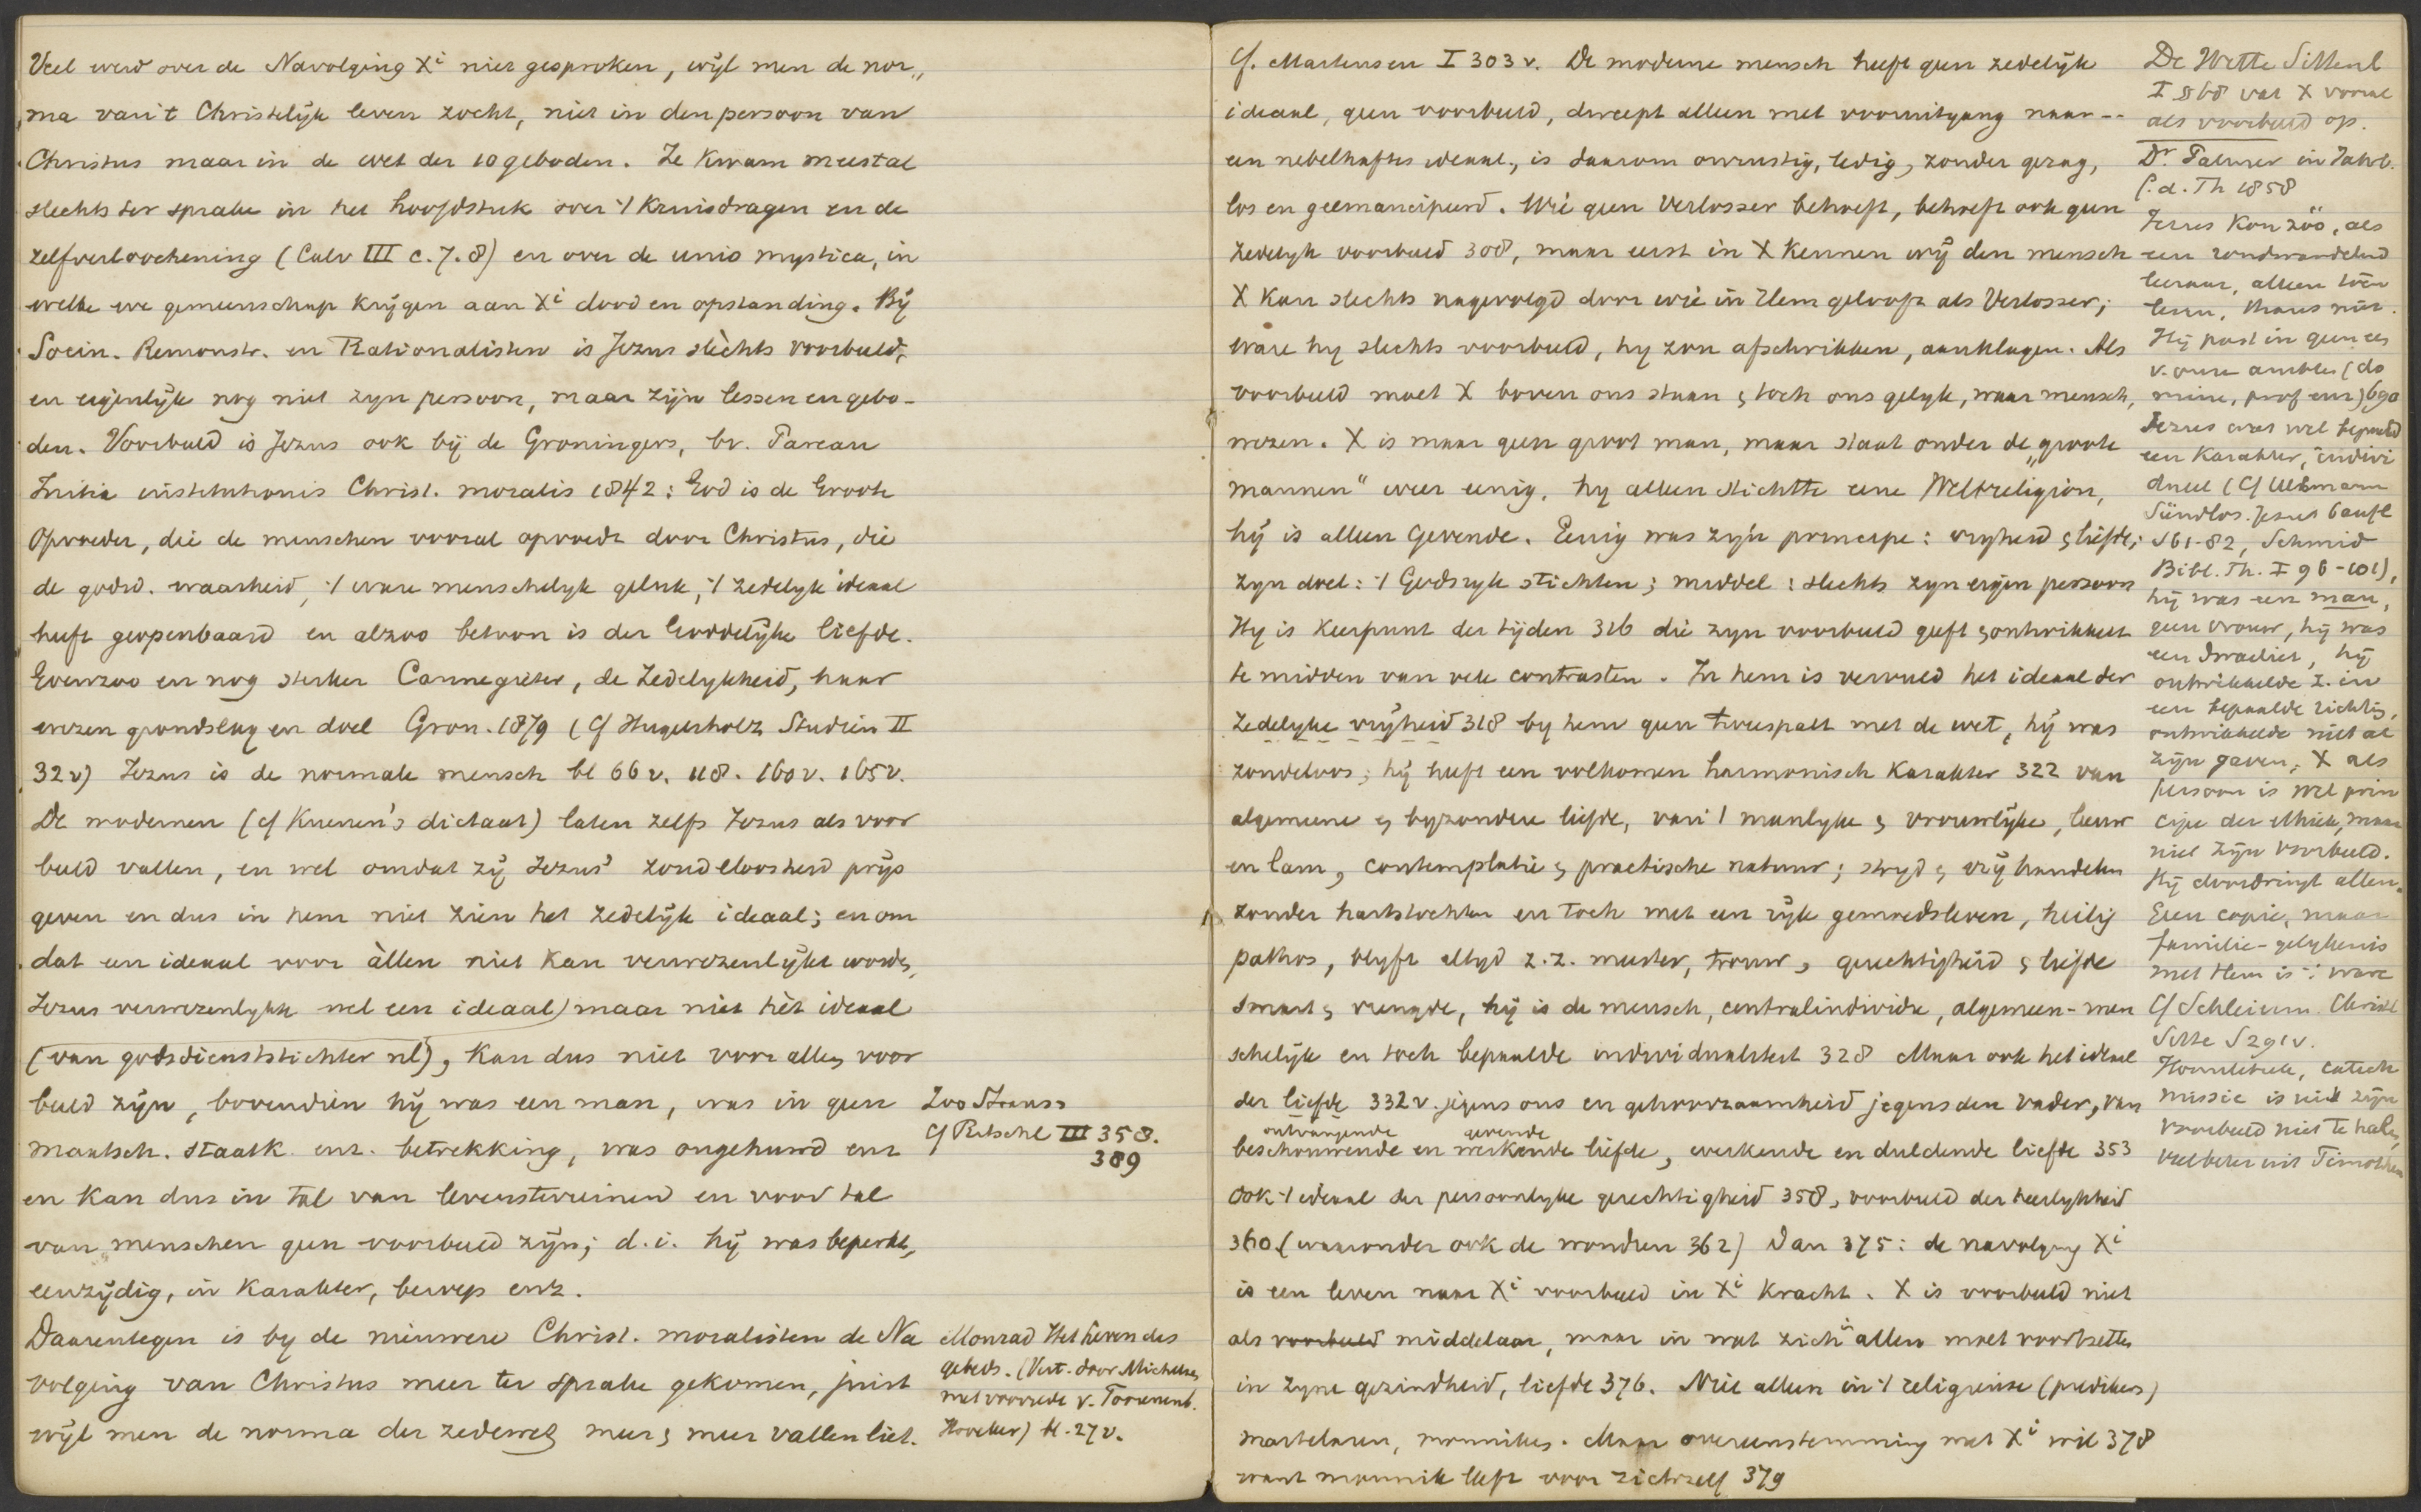 Veel werd over de Navolging Xi niet gesproken, wijl men de nor„
ma van 't Christelijk leven zocht, niet in den persoon van
Christus maar in de wet der 10 geboden. Ze kwam meestal
slechts ter sprake in het hoofdstuk over 't Kruisdragen en de
zelfverloochening (Calv III c. 7. 8) en over de unio mystica, in
welke we gemeenschap krijgen aan Xi dood en opstanding. Bij
Socin. Remonstr. en Rationalisten is Jezus slèchts voorbeeld,
en eigenlijk nog niet zijn persoon, maar zijn lessen en gebo-
den. Voorbeeld is Jezus ook bij de Groningers, bv. Pareau
Initia institutionis Christ. moralis 1842: God is de Groote
Opvoeder, die de menschen vooral opvoedt door Christus, die
de godsd. waarheid, 't ware menschelijk geluk, 't zedelijk ideaal
heeft geopenbaard en alzoo betoon is der Goddelijke liefde.
Evenzoo en nog sterker Cannegieter, de Zedelykheid, haar
wezen grondslag en doel Gron. 1879 (cf Hugenholz Studiën II
32v) Jezus is de normale mensch bl 66v. 118. 160v. 165v.
De modernen (cf Kuenen's dictaat) laten zelfs Jezus als voor
beeld vallen, en wel omdat zij Jezus' zondeloosheid prijs
geven en dus in hem niet zien het zedelijk ideaal; en om
dat een ideaal voor àllen niet kan verwezenlijkt worden,
Jezus verwezenlykte wel een ideaal) maar niet hèt ideaal
(van godsdienststichter nl), kan dus niet voor allen voor
beeld zijn, bovendien hij was een man, was in geen
maatsch. staatk. enz. betrekking, was ongehuwd enz
en kan dus in tal van levensterreinen en voor tal
van menschen geen voorbeeld zijn; d.i. hij was beperkt,
eenzijdig, in karakter, beroep enz.
Daarentegen is by de nieuwere Christ. moralisten de Na
volging van Christus meer ter sprake gekomen, juist
wijl men de norma der zedewet meer & meer vallen liet.
Zoo Strauss
cf Ritschl III 358.
389
Monrad Het leven des
gebeds. (Vert. door Michelsen
met voorrede v. Toorenenb.
Höveker) bl. 27v.
Cf. Martensen I 303v. De moderne mensch heeft geen zedelijk
ideaal, geen voorbeeld, dweept alleen met vooruitgang naar --
een nebelhaftes ideaal, is daarom onrustig, ledig, zonder gezag,
los en geemancipeerd. Wie geen Verlosser behoeft, behoeft ook geen
zedelyk voorbeeld 308, maar eerst in X kennen wij den mensch
X kan slechts nagevolgd door wie in Hem gelooft als Verlosser;
ware hy slechts voorbeeld, hy zou afschrikken, aanklagen. Als
voorbeeld moet X boven ons staan & toch ons gelyk, waar mensch,
wezen. X is maar geen groot man, maar staat onder de „groote
mannen“ weer eenig, hy alleen stichtte eene Weltreligion,
hij is alleen gevende. Eenig was zijn principe: vryheid & liefde;
zyn doel: 't Godsryk stichten; middel: slechts zyn eigen persoon
Hy is keerpunt der tijden 316 die zyn voorbeeld geeft & ontwikkelt
te midden van vele contrasten. In hem is vervuld het ideaal der
zedelyke vrijheid 318 by hem geen tweespalt met de wet, hij was
zondeloos; hij heeft een volkomen harmonisch karakter 322 van
algemeene & byzondere liefde, van 't manlyke & vrouwlijke, leeuw
en lam, contemplatie & practische natuur; stryd & vrij handelen
zonder hartstochten en toch met een rijk gemoedsleven, heilig
pathos, blyft altyd z.z. meester, trouw, gerechtigheid & liefde
smart & vreugde, hij is de mensch, centralindividu, algemeen-men
schelijk en toch bepaalde individualiteit 328 Maar ook het ideaal
der liefde 332v. jegens ons en gehoorzaamheid jegens den Vader, van
ontvangende gevende
beschouwende en werkende liefde, werkende en duldende liefde 353
Ook 't ideaal der persoonlyke gerechtigheid 358, voorbeeld der heerlykheid
360. (waaronder ook de wondren 362) Dan 375: de navolging Xi
is een leven naar Xi voorbeeld in Xi kracht. X is voorbeeld niet
als voorbeeld middelaar, maar in wat zich in allen moet voortzetten
in zyne gezindheid, liefde 376. Niet alleen in 't religieuse (predikers)
martelaren, monniken. Maar overeenstemming met Xi wil 378
want monnik leeft voor zichzelf 379
De Wette Sittenl
I §68 vat X vooral
als voorbeeld op.
Dr. Palmer in Jahrb.
f. d. Th 1858
Jezus kon zóó, als
een rondwandelend
leeraar, alleen toen
leven, thans niet.
Hij past in geen een
v. onze ambten (do
minee, prof enz) 690
Jezus was wel bepaald
een karakter, indivi
dueel (cf Ullmann
Sündlos. Jesus 6 aufl
S61-82, Schmid
Bibl. Th. I 96-101),
hij was een man,
geen vrouw, hij was
een Israeliet, hij
ontwikkelde z. in
een bepaalde richting,
ontwikkelde niet al
zijn gaven; X als
persoon is wel prin
cipe der ethiek, maar
niet zijn voorbeeld.
Hij doordringt allen.
Geen copie, maar
familie-gelykenis
met Hem is 't ware
Cf Schleierm. Christ
Sitte S291v.
Homiletiek, catech
missie is uit zijn
voorbeeld niet te halen,
veel beter uit Timotheus